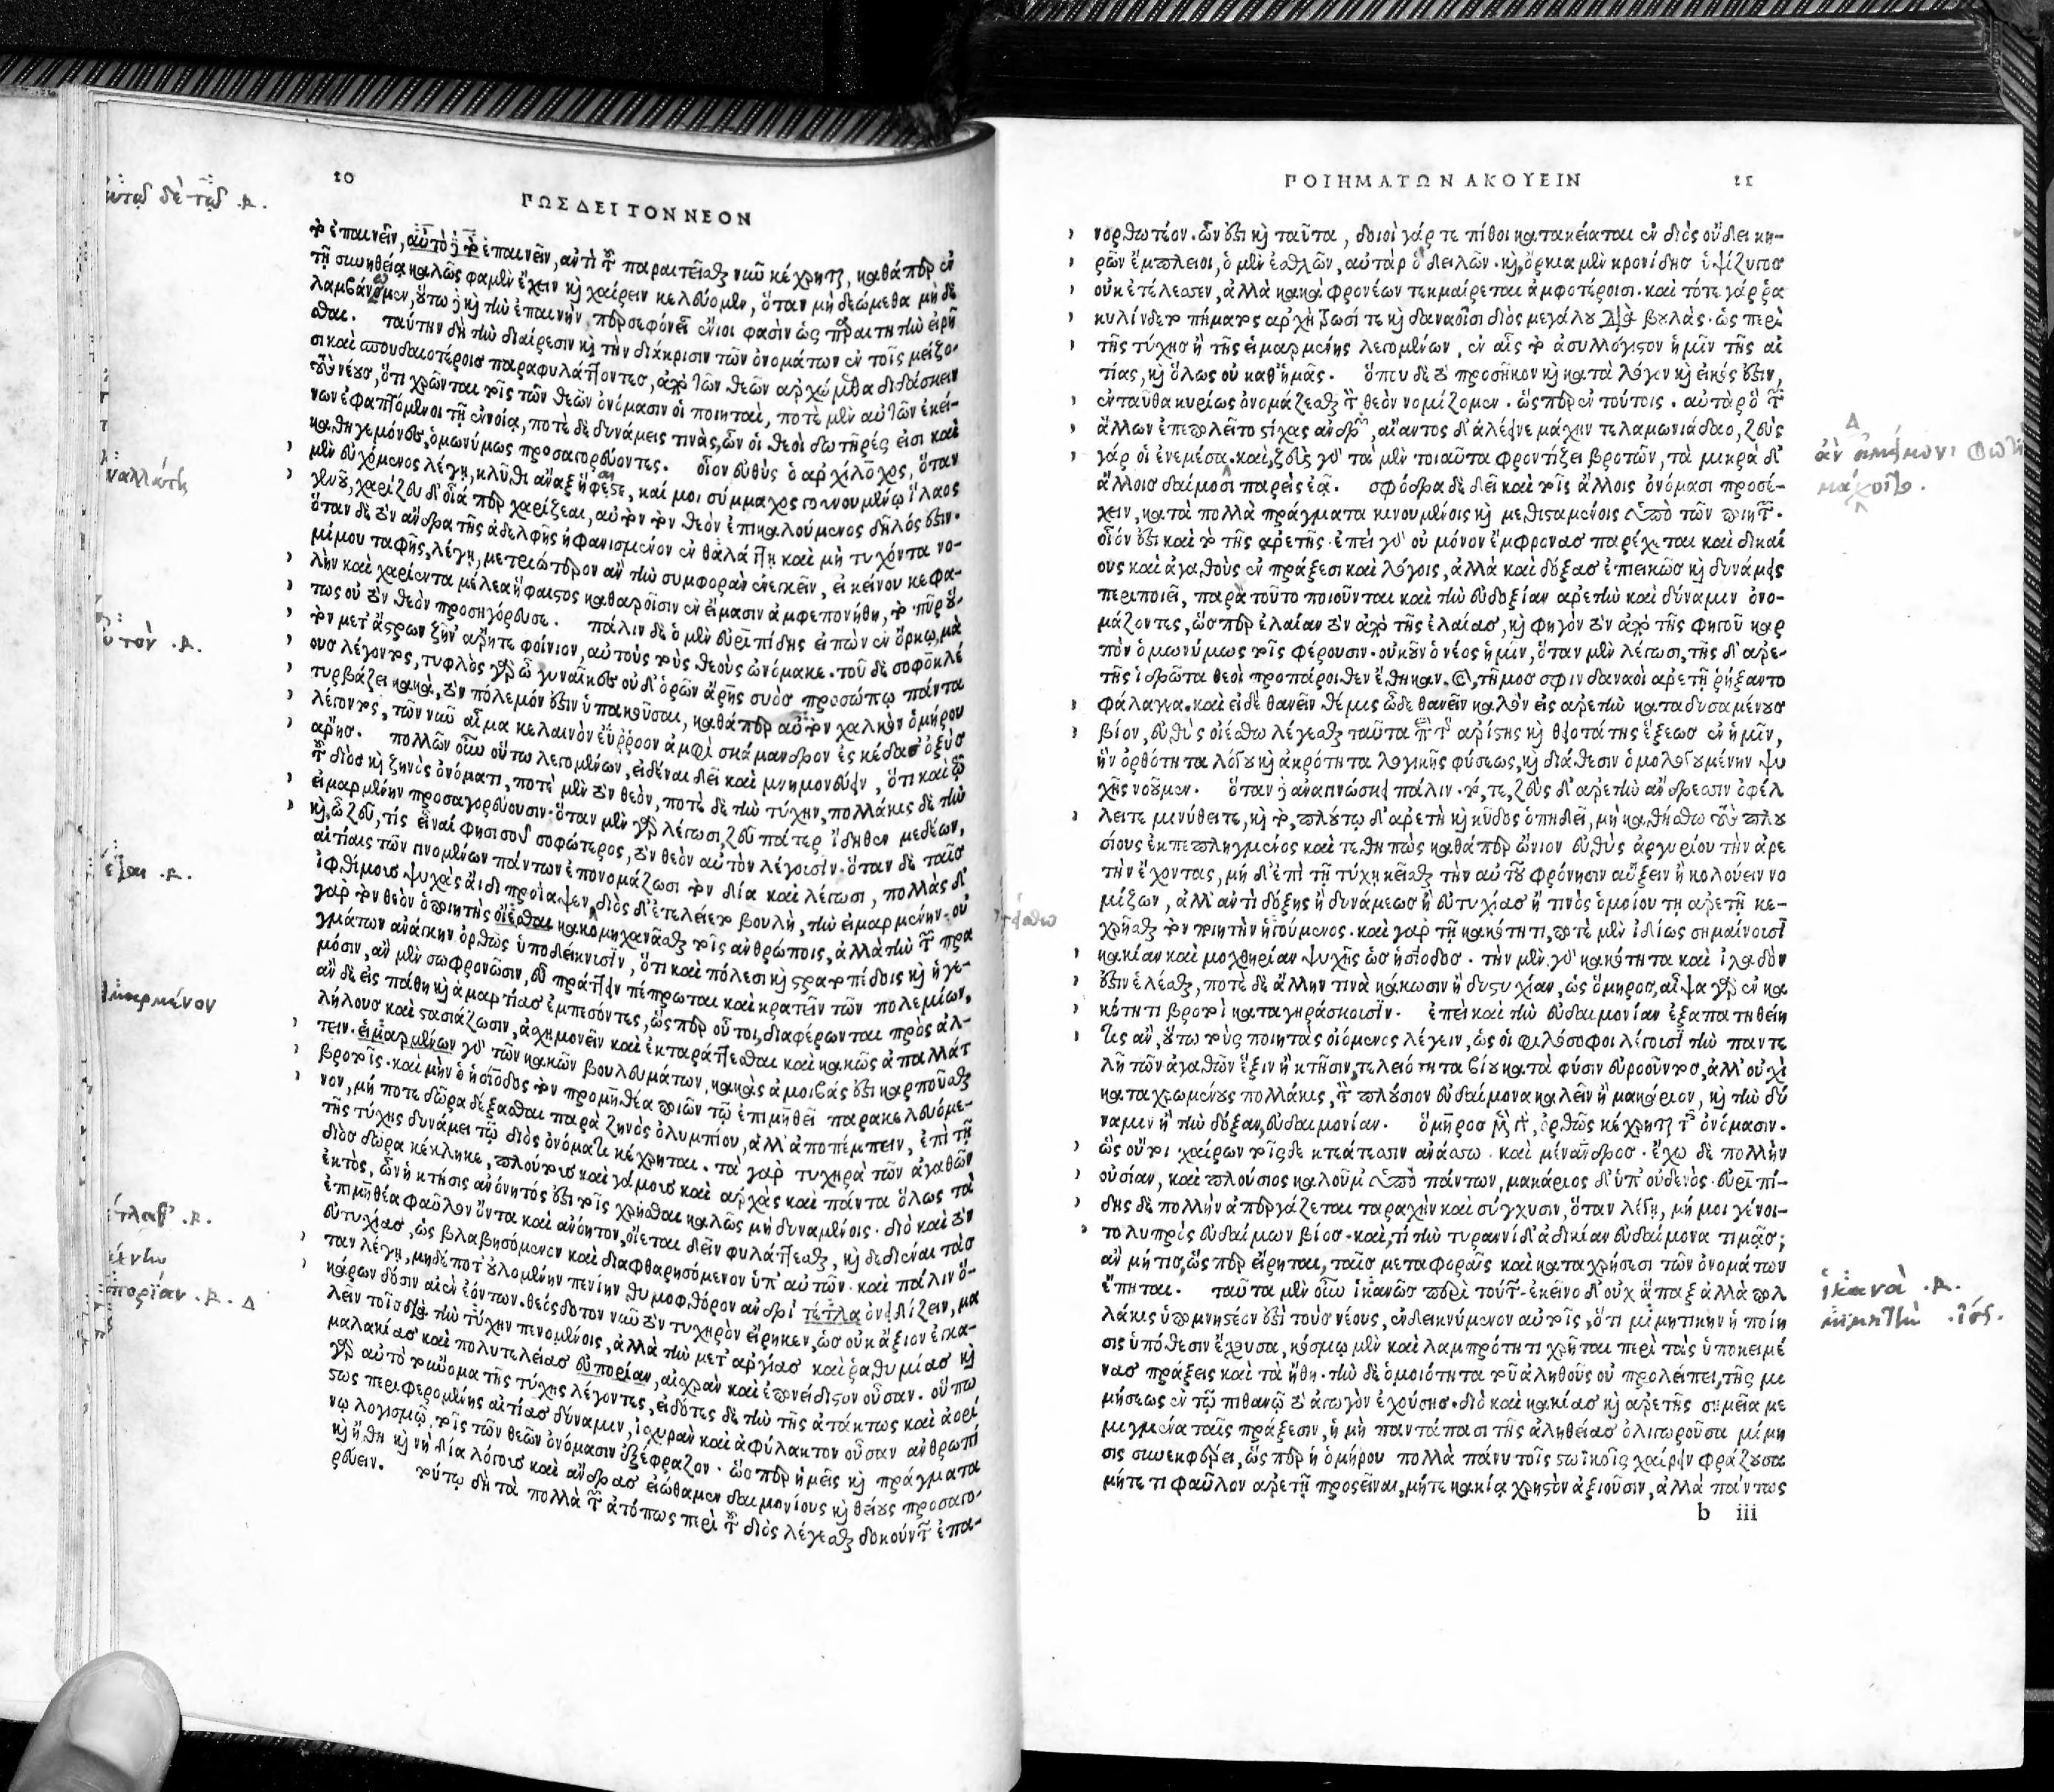 20
ΠΩΣ ΔΕΙ ΤΟΝ ΝΕΟΝ
τὸ ἐπαινεῖν, αὐτὸ δὲ τὸ ἐπαινεῖν, ἀντὶ τοῦ παραιτεῖσθαι νῦν κέχρηται, καθάπερ ἐν
τῇ συνηθείᾳ καλῶς φαμὲν ἔχειν καὶ χαίρειν κελεύομεν, ὅταν μὴ δεώμεθα μὴ δὲ
λαμβάνομεν, οὕτω δὲ καὶ τὴν ἐπαινὴν περσεφόνειαν ἔνιοι φασὶν ὡς παραιτητὴν εἰρῆ
σθαι. ταύτην δὴ τὴν διαίρεσιν καὶ τὴν διάκρισιν τῶν ὀνομάτων ἐν τοῖς μείζο-
σι καὶ σπουδαιοτέροις παραφυλάττοντες, ἀπὸ τῶν θεῶν ἀρχώμεθα διδάσκειν
τοὺς νέους, ὅτι χρῶνται τοῖς τῶν θεῶν ὀνόμασιν οἱ ποιηταὶ, ποτὲ μὲν αὐτῶν ἐκεί-
νων ἐφαπτόμενοι τῇ ἐννοίᾳ, ποτὲ δὲ δυνάμεις τινὰς, ὧν οἱ θεοὶ δωτῆρές εἰσι καὶ
καθηγεμόνες, ὁμωνύμως προσαγορεύοντες. οἷον εὐθὺς ὁ ἀρχίλοχος, ὅταν
μὲν εὐχόμενος λέγῃ, κλῦθι ἄναξ ἥφεστε, καί μοι σύμμαχος γουνουμένῳ ἵλαος
γενοῦ, χαρίζου δ' οἷά περ χαρίζεαι, αὐτὸν τὸν θεὸν ἐπικαλούμενος δῆλός ἐστιν.
ὅταν δὲ τὸν ἄνδρα τῆς ἀδελφῆς ἠφανισμένον ἐν θαλάττῃ καὶ μὴ τυχόντα νο-
μίμου ταφῆς, λέγῃ, μετριώτερον ἂν τὴν συμφορὰν ἐνεγκεῖν, εἰ κείνου κεφα-
λὴν καὶ χαρίεντα μέλεα ἥφαιστος καθαροῖσιν ἐν εἵμασιν ἀμφεπονήθη, τὸ πῦρ οὕ-
τως οὐ τὸν θεὸν προσηγόρευσε. πάλιν δὲ ὁ μὲν εὐριπίδης εἰπὼν ἐν ὅρκῳ, μὰ
τὸν μετ' ἄστρων ζῆν' ἄρητε φοίνιον, αὐτοὺς τοὺς θεοὺς ὠνόμακε. τοῦ δὲ σοφοκλέ
ους λέγοντος, τυφλὸς γὰρ ὦ γυναῖκες οὐδ' ὁρῶν ἄρης συὸς προσώπῳ πάντα
τυρβάζει κακὰ, τὸν πόλεμόν ἐστιν ὑπακοῦσαι, καθάπερ αὖ τὸν χαλκὸν ὁμήρου
λέγοντος, τῶν νῦν αἷμα κελαινὸν ἐΰρροον ἀμφὶ σκάμανδρον ἐσκέδασ' ὀξὺς
ἄρης. πολλῶν οὖν οὕτω λεγομένων, εἰδέναι δεῖ καὶ μνημονεύειν, ὅτι καὶ τῷ
τοῦ διὸς καὶ ζηνὸς ὀνόματι, ποτὲ μὲν τὸν θεὸν, ποτὲ δὲ τὴν τύχην, πολλάκις δὲ τὴν
εἱμαρμένην προσαγορεύουσιν. ὅταν μὲν γὰρ λέγωσι, ζεῦ πάτερ ἴδηθεν μεδέων,
καὶ, ὦ ζεῦ, τίς εἶναί φησι σοῦ σοφώτερος, τὸν θεὸν αὐτὸν λέγουσιν. ὅταν δὲ ταῖς
αἰτίαις τῶν γινομένων πάντων ἐπονομάζωσι τὸν δία καὶ λέγωσι, πολλὰς δ'
ἰφθίμους ψυχὰς ἄϊδι προΐαψεν, διὸς δ' ἐτελείετο βουλὴ, τὴν εἱμαρμένην. οὐ
γὰρ τὸν θεὸν ὁ ποιητὴς οἴεσθαι κακομηχανᾶσθαι τοῖς ἀνθρώποις, ἀλλὰ τὴν τῶν πρα
γμάτων ἀνάγκην ὀρθῶς ὑποδείκνυσιν, ὅτι καὶ πόλεσι καὶ στρατοπέδοις καὶ ἡγε-
μόσιν, ἂν μὲν σωφρονῶσιν, εὖ πράττειν πέπρωται καὶ κρατεῖν τῶν πολεμίων,
ἂν δὲ εἰς πάθη καὶ ἁμαρτίας ἐμπεσόντες, ὥσπερ οὗτοι, διαφέρωνται πρὸς ἀλ-
λήλους καὶ στασιάζωσιν, ἀσχημονεῖν καὶ ἐκταράττεσθαι καὶ κακῶς ἀπαλλάτ
τειν. εἱμαρμένων γὰρ τῶν κακῶν βουλευμάτων, κακὰς ἀμοιβάς ἐστι καρποῦσθαι
βροτοῖς. καὶ μὴν ὁ ἡσίοδος τὸν προμηθέα ποιῶν τῷ ἐπιμηθεῖ παρακελευόμε-
νον, μή ποτε δῶρα δέξασθαι παρὰ ζηνὸς ὀλυμπίου, ἀλλ' ἀποπέμπειν, ἐπὶ τῇ
τῆς τύχης δυνάμει τῷ διὸς ὀνόματι κέχρηται. τὰ γὰρ τυχηρὰ τῶν ἀγαθῶν
διὸς δῶρα κέκληκε, πλούτους καὶ γάμους καὶ ἀρχὰς καὶ πάντα ὅλως τὰ
ἐκτὸς, ὧν ἡ κτῆσις ἀνόνητός ἐστι τοῖς χρῆσθαι καλῶς μὴ δυναμένοις. διὸ καὶ τὸν
ἐπιμηθέα φαῦλον ὄντα καὶ ἀνόητον, οἴεται δεῖν φυλάττεσθαι, καὶ δεδιέναι τὰς
εὐτυχίας, ὡς βλαβησόμενον καὶ διαφθαρησόμενον ὑπ' αὐτῶν. καὶ πάλιν ὅ-
ταν λέγῃ, μηδέ ποτ' οὐλομένην πενίην θυμοφθόρον ἀνδρὶ τέτλα ὀνειδίζειν, μα
κάρων δόσιν αἰὲν ἐόντων. θεόσδοτον νῦν τὸν τυχηρὸν εἴρηκεν, ὡς οὐκ ἄξιον ἐγκα-
λεῖν τοῖς διὰ τὴν τύχην πενομένοις, ἀλλὰ τὴν μετ' ἀργίας καὶ ῥαθυμίας καὶ
μαλακίας καὶ πολυτελείας εὐπορίαν, αἰσχρὰν καὶ ἐπονείδιστον οὖσαν. οὔπω
γὰρ αὐτὸ τοὔνομα τῆς τύχης λέγοντες, εἰδότες δὲ τὴν τῆς ἀτάκτως καὶ ἀορί
στως περιφερομένης αἰτίας δύναμιν, ἰσχυρὰν καὶ ἀφύλακτον οὖσαν ἀνθρωπί
νῳ λογισμῷ, τοῖς τῶν θεῶν ὀνόμασιν ἐξέφραζον. ὥσπερ ἡμεῖς καὶ πράγματα
καὶ ἤθη καὶ νὴ δία λόγους καὶ ἄνδρας εἰώθαμεν δαιμονίους καὶ θείους προσαγο-
ρεύειν. τούτῳ δὴ τὰ πολλὰ τῶν ἀτόπως περὶ τοῦ διὸς λέγεσθαι δοκούντων ἐπα-
ΠΟΙΗΜΑΤΩΝ ΑΚΟΥΕΙΝ
21
νορθωτέον. ὧν ἐστι καὶ ταῦτα, δοιοὶ γάρ τε πίθοι κατακείαται ἐν διὸς οὔδει κη-
ρῶν ἔμπλειοι, ὁ μὲν ἐσθλῶν, αὐτὰρ ὁ δειλῶν. καὶ, ὅρκια μὲν κρονίδης ὑψίζυγος
οὐκ ἐτέλεσσεν, ἀλλὰ κακὰ φρονέων τεκμαίρεται ἀμφοτέροισι. καὶ τότε γάρ ῥα
κυλίνδετο πήματος ἀρχὴ τρωσί τε καὶ δαναοῖσι διὸς μεγάλου διὰ βουλάς. ὡς περὶ
τῆς τύχης ἢ τῆς εἱμαρμένης λεγομένων, ἐν αἷς τὸ ἀσυλλόγιστον ἡμῖν τῆς αἰ
τίας, καὶ ὅλως οὐ καθ' ἡμᾶς. ὅπου δὲ τὸ προσῆκον καὶ κατὰ λόγον καὶ εἰκός ἐστιν,
ἐνταῦθα κυρίως ὀνομάζεσθαι τὸν θεὸν νομίζομεν. ὥσπερ ἐν τούτοις. αὐτὰρ ὁ τῶν
ἄλλων ἐπεπωλεῖτο στίχας ἀνδρῶν, αἴαντος δ' ἀλέεινε μάχην τελαμωνιάδαο, ζεὺς
γάρ οἱ ἐνεμέσα. καὶ, ζεὺς γὰρ τὰ μὲν τοιαῦτα φροντίζει βροτῶν, τὰ μικρὰ δ'
ἄλλοις δαίμοσι παρεὶς ἐᾷ. σφόδρα δὲ δεῖ καὶ τοῖς ἄλλοις ὀνόμασι προσέ-
χειν, κατὰ πολλὰ πράγματα κινουμένοις καὶ μεθισταμένοις ὑπὸ τῶν ποιητῶν.
οἷόν ἐστι καὶ τὸ τῆς ἀρετῆς. ἐπεὶ γὰρ οὐ μόνον ἔμφρονας παρέχεται καὶ δικαί
ους καὶ ἀγαθοὺς ἐν πράξεσι καὶ λόγοις, ἀλλὰ καὶ δόξας ἐπιεικῶς καὶ δυνάμεις
περιποιεῖ, παρὰ τοῦτο ποιοῦνται καὶ τὴν εὐδοξίαν ἀρετὴν καὶ δύναμιν ὀνο-
μάζοντες, ὥσπερ ἐλαίαν τὸν ἀπὸ τῆς ἐλαίας, καὶ φηγὸν τὸν ἀπὸ τῆς φηγοῦ καρ
πὸν ὁμωνύμως τοῖς φέρουσιν. οὐκοῦν ὁ νέος ἡμῖν, ὅταν μὲν λέγωσι, τῆς δ' ἀρε-
τῆς ἱδρῶτα θεοὶ προπάροιθεν ἔθηκαν. καὶ, τῆμος σφιν δαναοὶ ἀρετῇ ῥήξαντο
φάλαγγα. καὶ εἰ δὲ θανεῖν θέμις ὧδε θανεῖν καλὸν εἰς ἀρετὴν καταδυσαμένους
βίον, εὐθὺς οἰέσθω λέγεσθαι ταῦτα περὶ τῆς ἀρίστης καὶ θειοτάτης ἕξεως ἐν ἡμῖν,
ἣν ὀρθότητα λόγου καὶ ἀκρότητα λογικῆς φύσεως, καὶ διάθεσιν ὁμολογουμένην ψυ
χῆς νοοῦμεν. ὅταν δὲ ἀναγινώσκῃ πάλιν. τό, τε, ζεὺς δ' ἀρετὴν ἄνδρεσσιν ὀφέλ
λει τε μινύθει τε, καὶ τὸ, πλούτῳ δ' ἀρετὴ καὶ κῦδος ὀπηδεῖ, μὴ καθήσθω τοὺς πλου
σίους ἐκπεπληγμένος καὶ τεθηπὼς καθάπερ ὤνιον εὐθὺς ἀργυρίου τὴν ἀρε
τὴν ἔχοντας, μὴ δ' ἐπὶ τῇ τύχῃ κεῖσθαι τὴν αὑτοῦ φρόνησιν αὔξειν ἢ κολούειν νο
μίζων, ἀλλ' ἀντὶ δόξης ἢ δυνάμεως ἢ εὐτυχίας ἤ τινος ὁμοίου τῇ ἀρετῇ κε-
χρῆσθαι τὸν ποιητὴν ἡγούμενος. καὶ γὰρ τῇ κακότητι, ποτὲ μὲν ἰδίως σημαίνουσι
κακίαν καὶ μοχθηρίαν ψυχῆς ὡς ἡσίοδος. τὴν μὲν γὰρ κακότητα καὶ ἰλαδόν
ἐστιν ἑλέσθαι, ποτὲ δὲ ἄλλην τινὰ κάκωσιν ἢ δυστυχίαν, ὡς ὅμηρος, αἶψα γὰρ ἐν κα
κότητι βροτοὶ καταγηράσκουσιν. ἐπεὶ καὶ τὴν εὐδαιμονίαν ἐξαπατηθείη
τις ἂν, οὕτω τοὺς ποιητὰς οἰόμενος λέγειν, ὡς οἱ φιλόσοφοι λέγουσι τὴν παντε
λῆ τῶν ἀγαθῶν ἕξιν ἢ κτῆσιν, τελειότητα βίου κατὰ φύσιν εὐροοῦντος, ἀλλ' οὐχὶ
καταχρωμένους πολλάκις, τὸν πλούσιον εὐδαίμονα καλεῖν ἢ μακάριον, καὶ τὴν δύ
ναμιν ἢ τὴν δόξαν, εὐδαιμονίαν. ὅμηρος μὲν οὖν, ὀρθῶς κέχρηται τοῖς ὀνόμασιν.
ὣς οὔτι χαίρων τοῖς δε κτεάτεσσιν ἀνάσσω. καὶ μένανδρος. ἔχω δὲ πολλὴν
οὐσίαν, καὶ πλούσιος καλοῦμ' ὑπὸ πάντων, μακάριος δ' ὑπ' οὐδενός. εὐριπί-
δης δὲ πολλὴν ἀπεργάζεται ταραχὴν καὶ σύγχυσιν, ὅταν λέγῃ, μή μοι γένοι-
το λυπρὸς εὐδαίμων βίος. καὶ, τί τὴν τυραννίδ' ἀδικίαν εὐδαίμονα τιμᾷς;
ἂν μή τις, ὥσπερ εἴρηται, ταῖς μεταφοραῖς καὶ καταχρήσεσι τῶν ὀνομάτων
ἕπηται. ταῦτα μὲν οὖν ἱκανῶς περὶ τούτων. ἐκεῖνο δ' οὐχ ἅπαξ ἀλλὰ πολ
λάκις ὑπομνηστέον ἐστὶ τοὺς νέους, ἐνδεικνύμενον αὐτοῖς, ὅτι μιμητικὴν ἡ ποίη
σις ὑπόθεσιν ἔχουσα, κόσμῳ μὲν καὶ λαμπρότητι χρῆται περὶ τὰς ὑποκειμέ
νας πράξεις καὶ τὰ ἤθη. τὴν δὲ ὁμοιότητα τοῦ ἀληθοῦς οὐ προλείπει, τῆς μι
μήσεως ἐν τῷ πιθανῷ τὸ ἀγωγὸν ἐχούσης. διὸ καὶ κακίας καὶ ἀρετῆς σημεῖα με
μιγμένα ταῖς πράξεσιν, ἡ μὴ παντάπασι τῆς ἀληθείας ὀλιγωροῦσα μίμη
σις συνεκφέρει, ὥσπερ ἡ ὁμήρου πολλὰ πάνυ τοῖς στωϊκοῖς χαίρειν φράζουσα
μήτε τι φαῦλον ἀρετῇ προσεῖναι, μήτε κακίᾳ χρηστὸν ἀξιοῦσιν, ἀλλὰ πάντως
b iii
ἱκανὰ